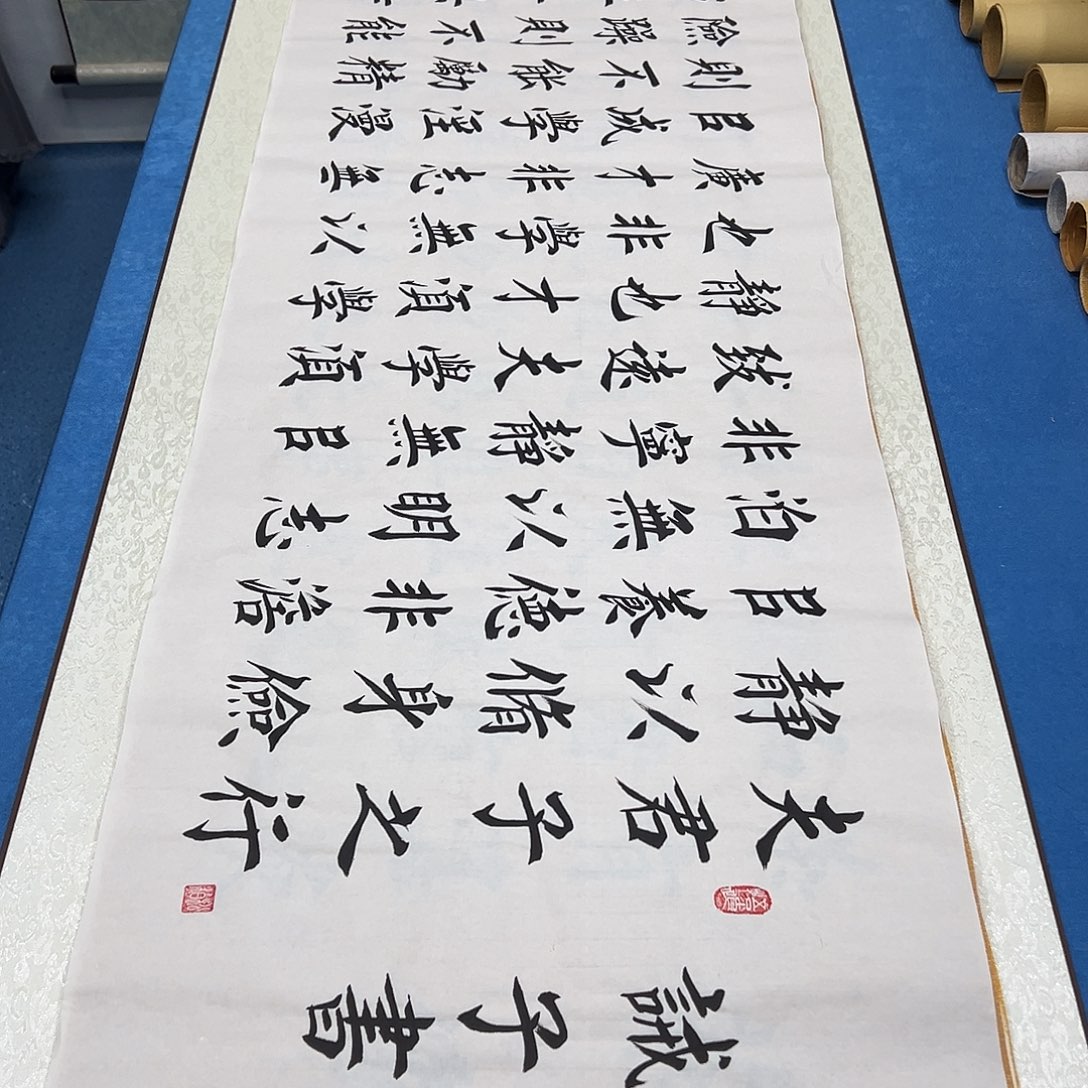 誡子書
夫君子之行
靜以脩身儉
㠯養德非澹
泊無以明志
非寧靜無㠯
致遠夫學須
靜也才須學
也非學無以
廣才非志無
㠯成學淫漫
則不能勵精
險躁則不能